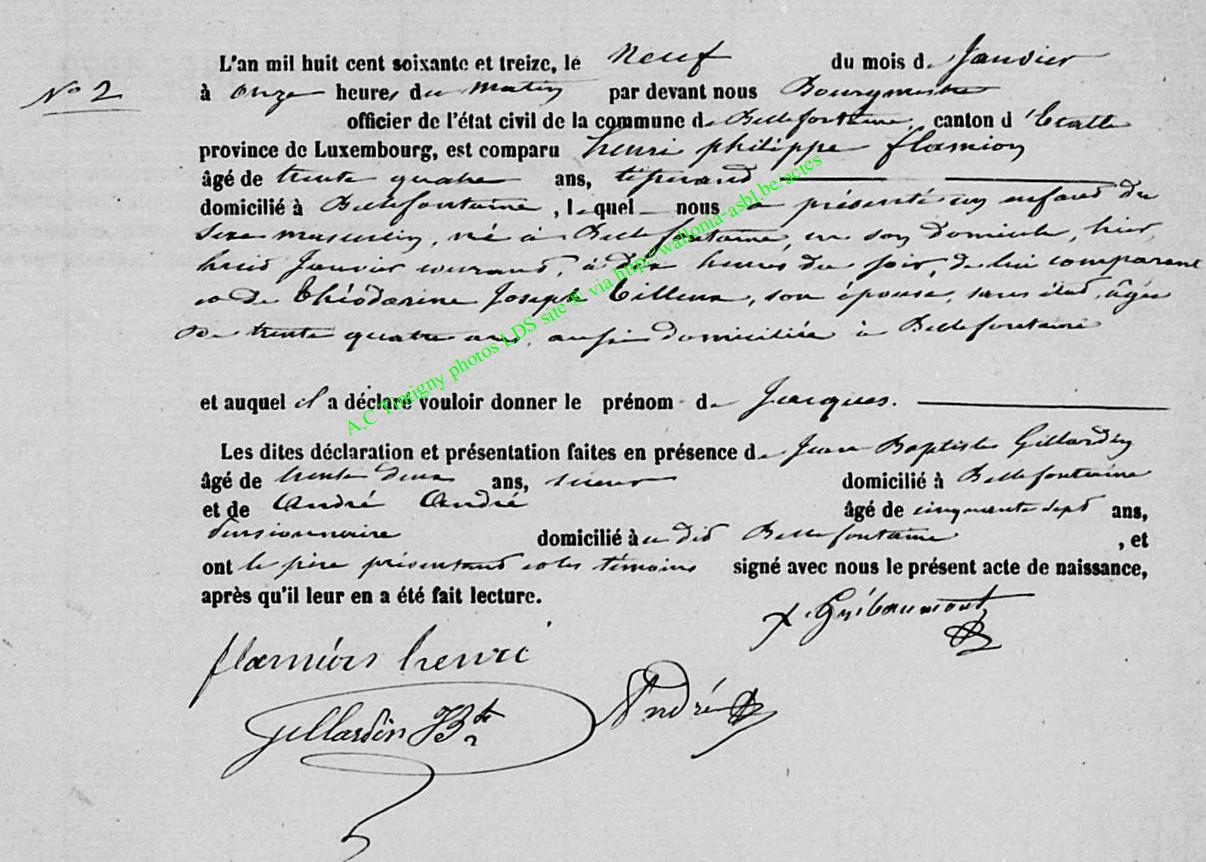 No 2
L'an mil huit cent soixante et treize, le Neuf du mois de Janvier
à Onze heures du Matin par devant nous Bourgmestre
officier de l'état civil de la commune de Bellefontaine, canton d'Etalle
province de Luxembourg, est comparu henri philippe flamion
âgé de trente quatre ans, tisserand
domicilié à Bellefontaine, lequel nous a présenté un enfant du
Sexe masculin, né à Bellefontaine, en son domicile, hier,
huit Janvier courant, à dix heures du soir, de lui comparant
et de Théodorine Joseph son épouse, sans état, âgée
de trente quatre ans, aussi domiciliée à Bellefontaine
et auquel il a déclaré vouloir donner le prénom de Jacques.
Les dites déclaration et présentation faites en présence de Jean Baptiste Gillardin
âgé de trente deux ans, domicilié à Bellefontaine
et de André André âgé de cinquante sept ans,
pensionnaire domicilié à ce dit Bellefontaine, et
ont le père présentant et les témoins signé avec nous le présent acte de naissance,
après qu'il leur en a été fait lecture.
flamion henri
Gillardin JBte
André
A.C Tintigny photos LDS site & via http://wallonia-asbl.be/actes